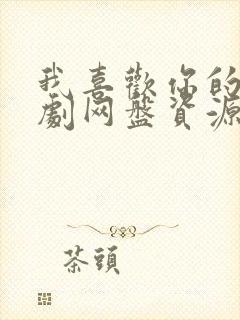 我喜歡你的
劇网盤資源
茶頭